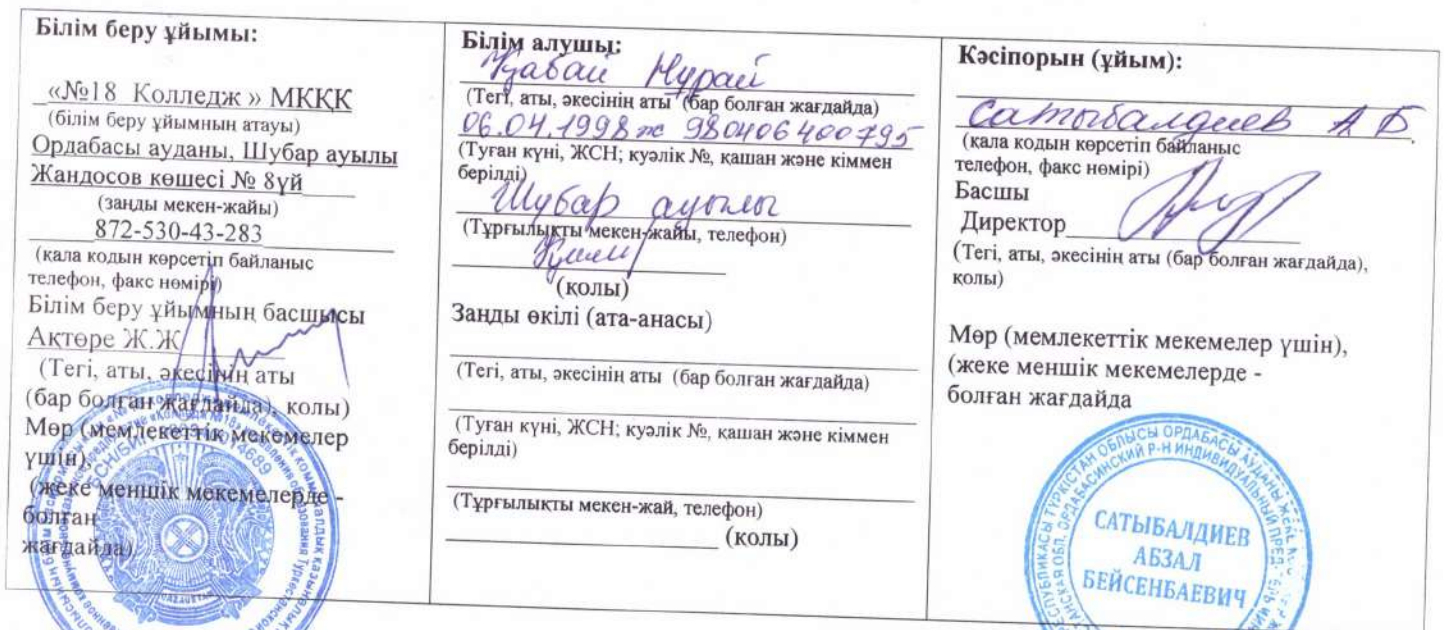 Білім беру ұйымы:
«№18 Колледж » МКҚК
(білім беру ұйымнын атауы)
Ордабасы ауданы, Шубар ауылы
Жандосов көшесі № 8үй
(заңды мекен-жайы)
872-530-43-283
(кала кодын көрсетіп байланыс
телефон, факс нөмірі)
Білім беру ұйымның басшысы
Ақтөре Ж.Ж
(Тегі, аты, әкесінің аты
(бар болған жағдайда), қолы)
Мөр (мемлекеттік мекемелер
үшін),
(жеке меншік мекемелерде -
болған
жағдайда)
Білім алушы:
Қабай Нұрай
(Тегі, аты, әкесінің аты (бар болған жағдайда)
06.04.1998 ж 980406400795
(Туған күні, ЖСН; куәлік №, қашан және кіммен
берілді)
Шубар ауылы
(Тұрғылықты мекен-жайы, телефон)
(қолы)
Заңды өкілі (ата-анасы)
(Тегі, аты, әкесінің аты (бар болған жағдайда)
(Туған күні, ЖСН; куәлік №, қашан және кіммен
берілді)
(Тұрғылықты мекен-жай, телефон)
(қолы)
Кәсіпорын (ұйым):
Сатыбалдиев А Б.
(қала кодын көрсетіп байланыс
телефон, факс нөмірі)
Басшы
Директор
(Тегі, аты, әкесінің аты (бар болған жағдайда),
қолы)
Мөр (мемлекеттік мекемелер үшін),
(жеке меншік мекемелерде -
болған жағдайда
САТЫБАЛДИЕВ
АБЗАЛ
БЕЙСЕНБАЕВИЧ